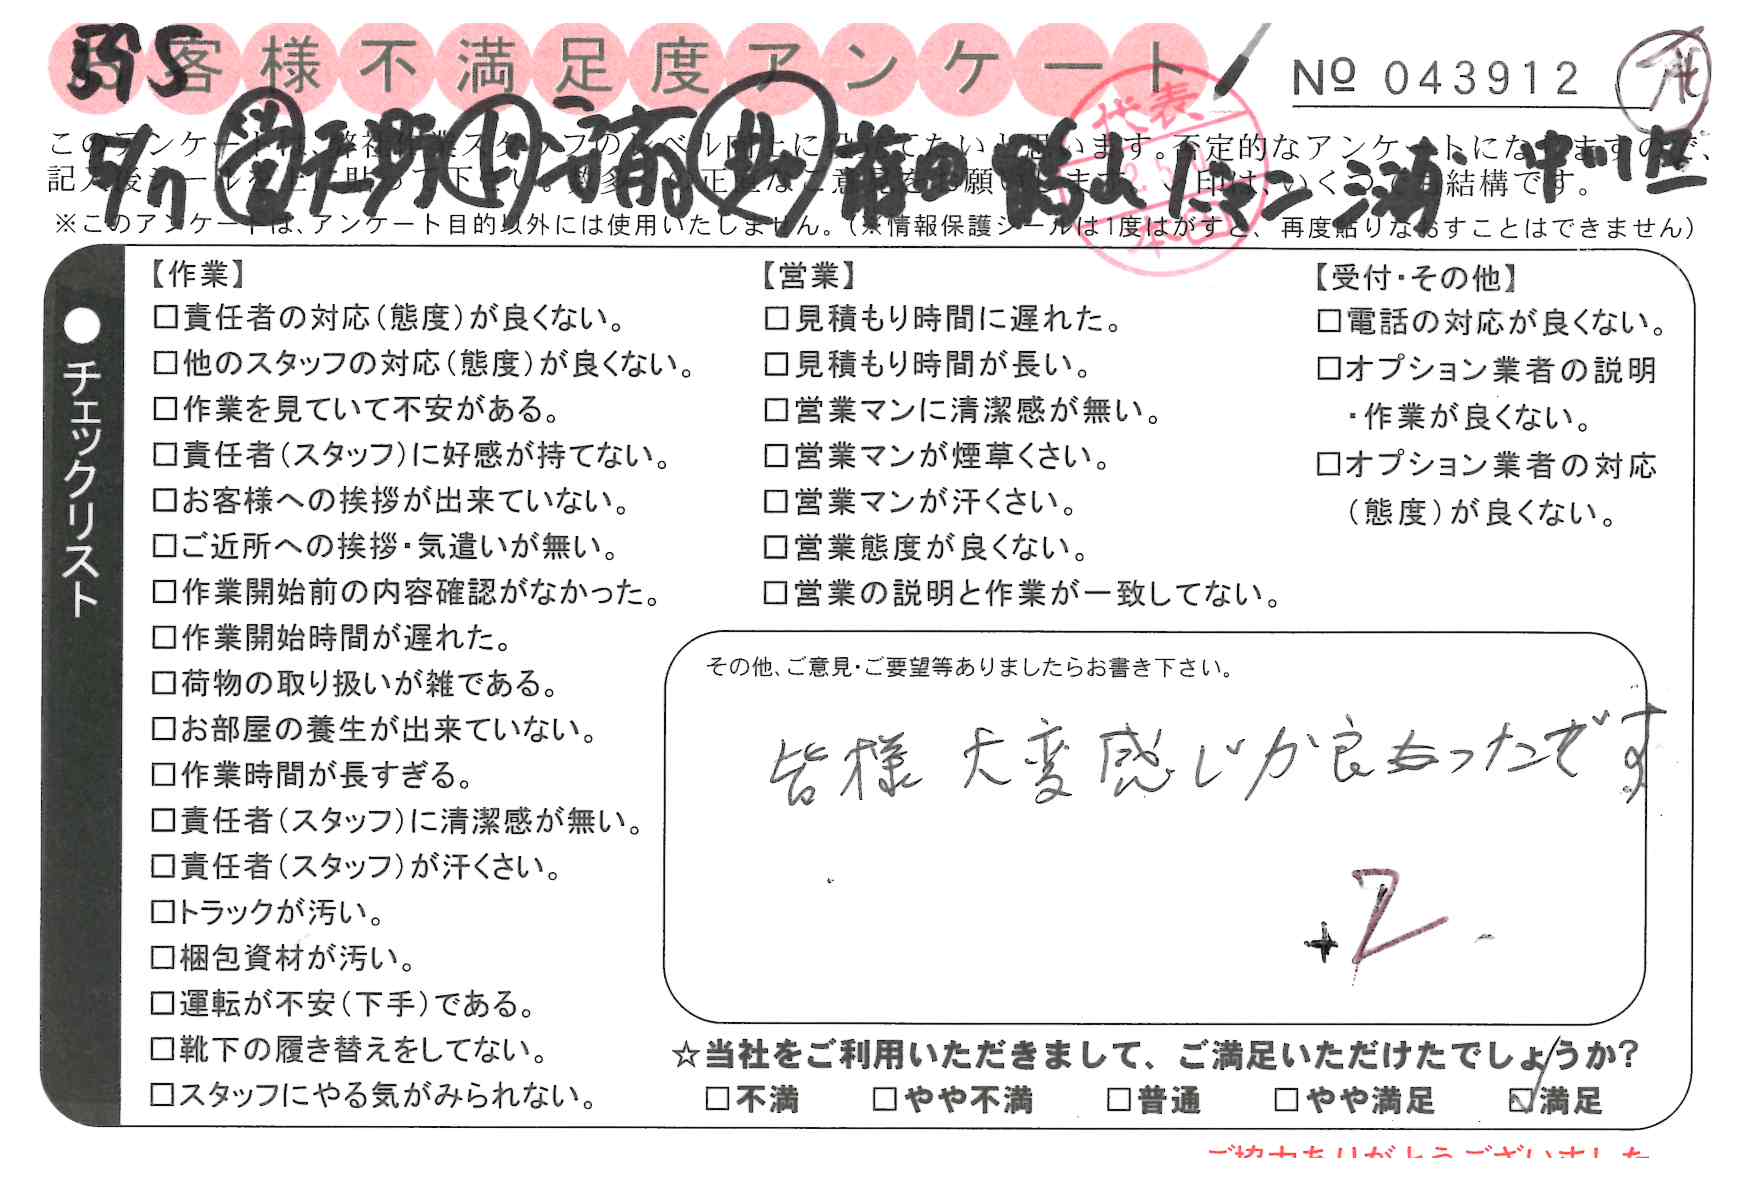 お客様不満足度アンケート
№ 043912
5/17
このアンケートは、弊社作業スタッフのレベル向上に役立てたいと思います。否定的なアンケートになりますので、
記入後シールを上に貼って下さい。
※このアンケートは、アンケート目的以外には使用いたしません。(※情報保護シールは1度はがすと、再度貼りなおすことはできません)
代表
●チェックリスト
【作業】
□責任者の対応(態度)が良くない。
□他のスタッフの対応(態度)が良くない。
□作業を見ていて不安がある。
□責任者(スタッフ)に好感が持てない。
□お客様への挨拶が出来ていない。
□ご近所への挨拶・気遣いが無い。
□作業開始前の内容確認がなかった。
□作業開始時間が遅れた。
□荷物の取り扱いが雑である。
□お部屋の養生が出来ていない。
□作業時間が長すぎる。
□責任者(スタッフ)に清潔感が無い。
□責任者(スタッフ)が汗くさい。
□トラックが汚い。
□梱包資材が汚い。
□運転が不安(下手)である。
□靴下の履き替えをしてない。
□スタッフにやる気がみられない。
【営業】
□見積もり時間に遅れた。
□見積もり時間が長い。
□営業マンに清潔感が無い。
□営業マンが煙草くさい。
□営業マンが汗くさい。
□営業態度が良くない。
□営業の説明と作業が一致してない。
【受付・その他】
□電話の対応が良くない。
□オプション業者の説明
・作業が良くない。
□オプション業者の対応
(態度)が良くない。
その他、ご意見・ご要望等ありましたらお書き下さい。
皆様 大変感じが良かったです
+2
☆当社をご利用いただきまして、ご満足いただけたでしょうか?
□不満 □やや不満 □普通 □やや満足 ☑満足
ご協力ありがとうございました